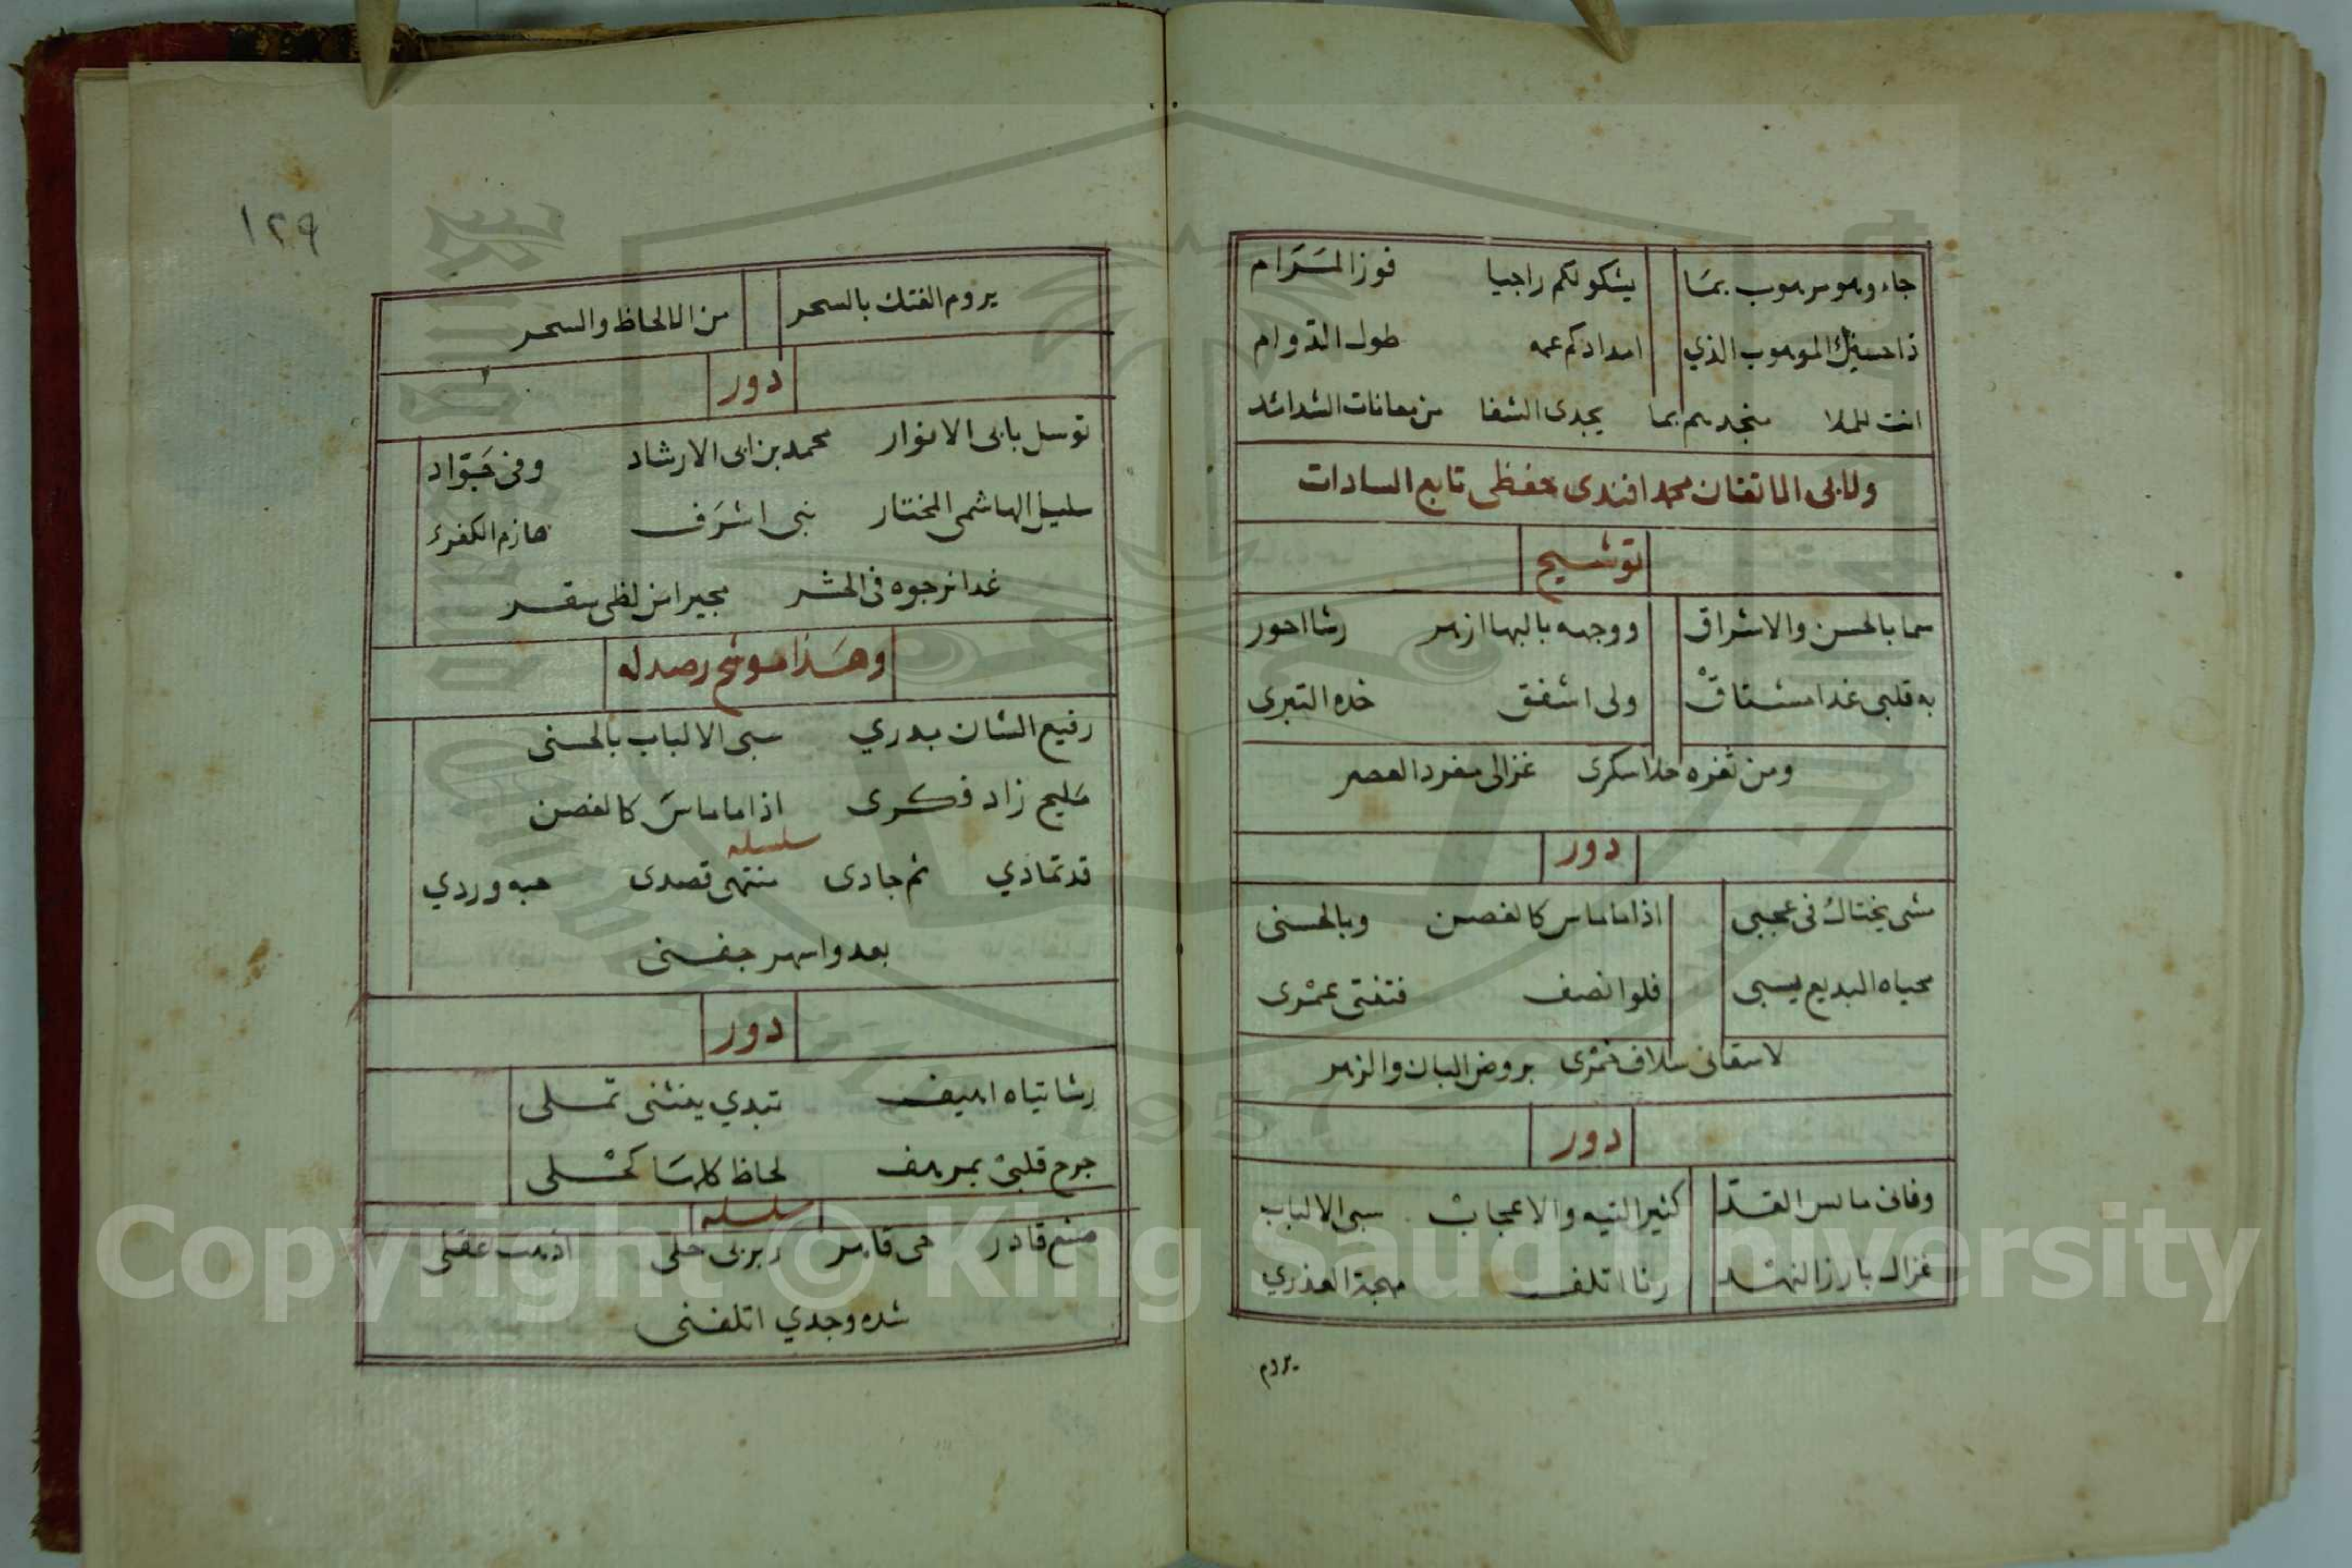 جاء وهو مرهوب بما يشكو لكم راجيا فوز المرام
ذا حسنك الموهوب الذي امدادكم عمه طول الدوام
انت للملا منجدهم بما يجدى الشفا من معانات الشدائد
ولابى الاتقان محمد افندى حفظى تابع السادات
توشيح
سما بالحسن والاشراق ووجهه بالبها ازهر رشا احور
به قلبى غدا مشتاق ولى اشفق خده التبرى
ومن ثغره حلا سكرى غزالى مفرد العصر
دور
مشى يختال فى عجبى اذا ما ماس كالغصن وبالحسنى
محياه البديع يسبى فلو انصف فتفتى عمرى
لاسقانى سلاف خمرى بروض البان والزهر
دور
وفانى مايس القد كثير التيه والاعجاب سبى الالباب
غزال بارز النهد رنا اتلف مهجة العذري
يروم
١٢٩
يروم الفتك بالسحر من الالحاظ والسحر
دور
توسل بابى الانوار محمد بن ابى الارشاد وفى جواد
سليل الهاشمى المختار نبى اشرف هازم الكفر
غدا نرجوه فى الحشر مجيرا من لظى سقر
وهذا موشح رصد له
رفيع الشان بدري سبى الالباب بالحسنى
مليح زاد فكرى اذا ما ماس كالغصن
سلسله
قد تمادي ثم جادى منتهى قصدى حبه وردي
بعد واسهر جفنى
دور
رشا تياه اهيف تبدي ينثنى تملى
جرح قلبى بمرهف لحاظ كلها كحلى
سلسله
منع قادر حى قاهر ربربى حلى اذهب عقلى
شده وجدي اتلفنى
Copyright © King Saud University
1957